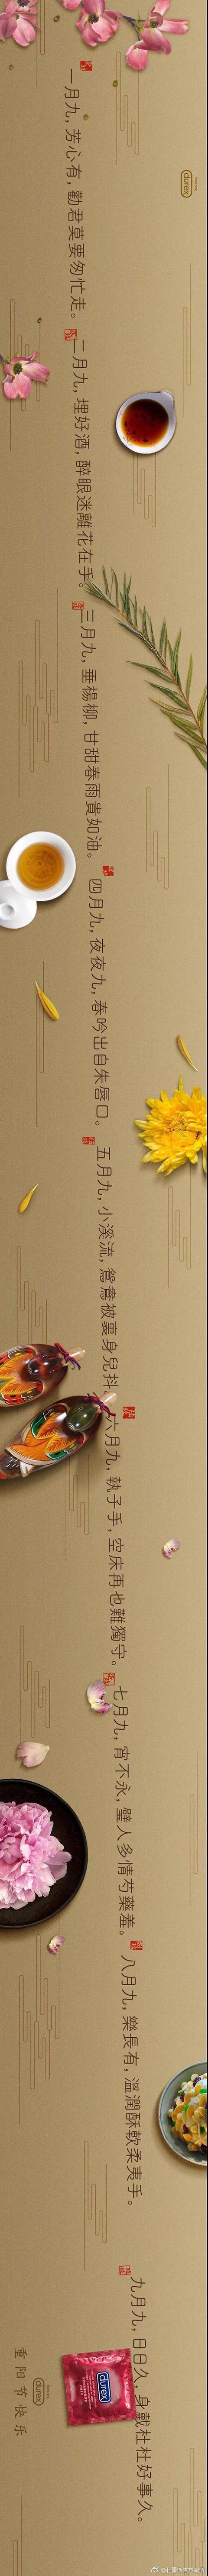 durex
一月九，芳心有，勸君莫要匆忙走。
二月九，埋好酒，醉眼迷離花在手。
三月九，垂楊柳，甘甜春雨貴如油。
四月九，夜夜九，春吟出自朱唇口。
五月九，小溪流，鴛鴦被裏身兒抖。
六月九，執子手，空床再也難獨守。
七月九，宵不永，璧人多情芍藥羞。
八月九，樂長有，溫潤酥軟柔荑手。
九月九，日日久，身戴杜杜好事久。
durex
durex
重阳节快乐